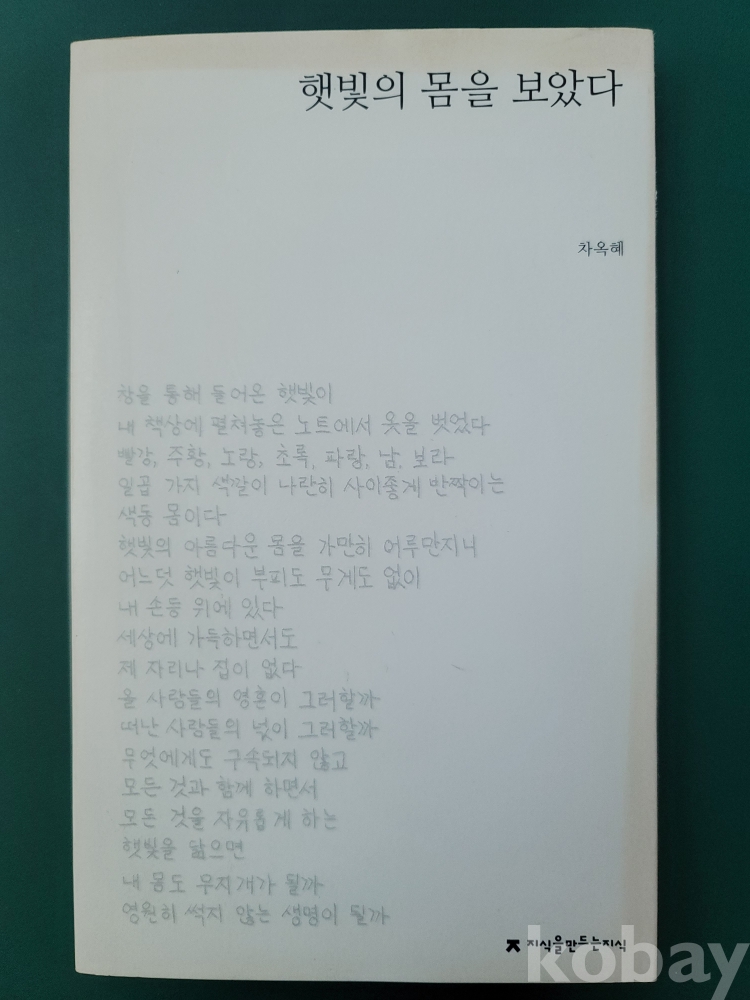 햇빛의 몸을 보았다
차옥혜
창을 통해 들어온 햇빛이
내 책상에 펼쳐놓은 노트에서 옷을 벗었다
빨강, 주황, 노랑, 초록, 파랑, 남, 보라
일곱 가지 색깔이 나란히 사이좋게 반짝이는
색동 몸이다
햇빛의 아름다운 몸을 가만히 어루만지니
어느덧 햇빛이 부피도 무게도 없이
내 손등 위에 있다
세상에 가득하면서도
제 자리나 집이 없다
올 사람들의 영혼이 그러할까
떠난 사람들의 넋이 그러할까
무엇에게도 구속되지 않고
모든 것과 함께 하면서
모든 것을 자유롭게 하는
햇빛을 닮으면
내 몸도 무지개가 될까
영원히 썩지 않는 생명이 될까
지식을만드는지식
kobay